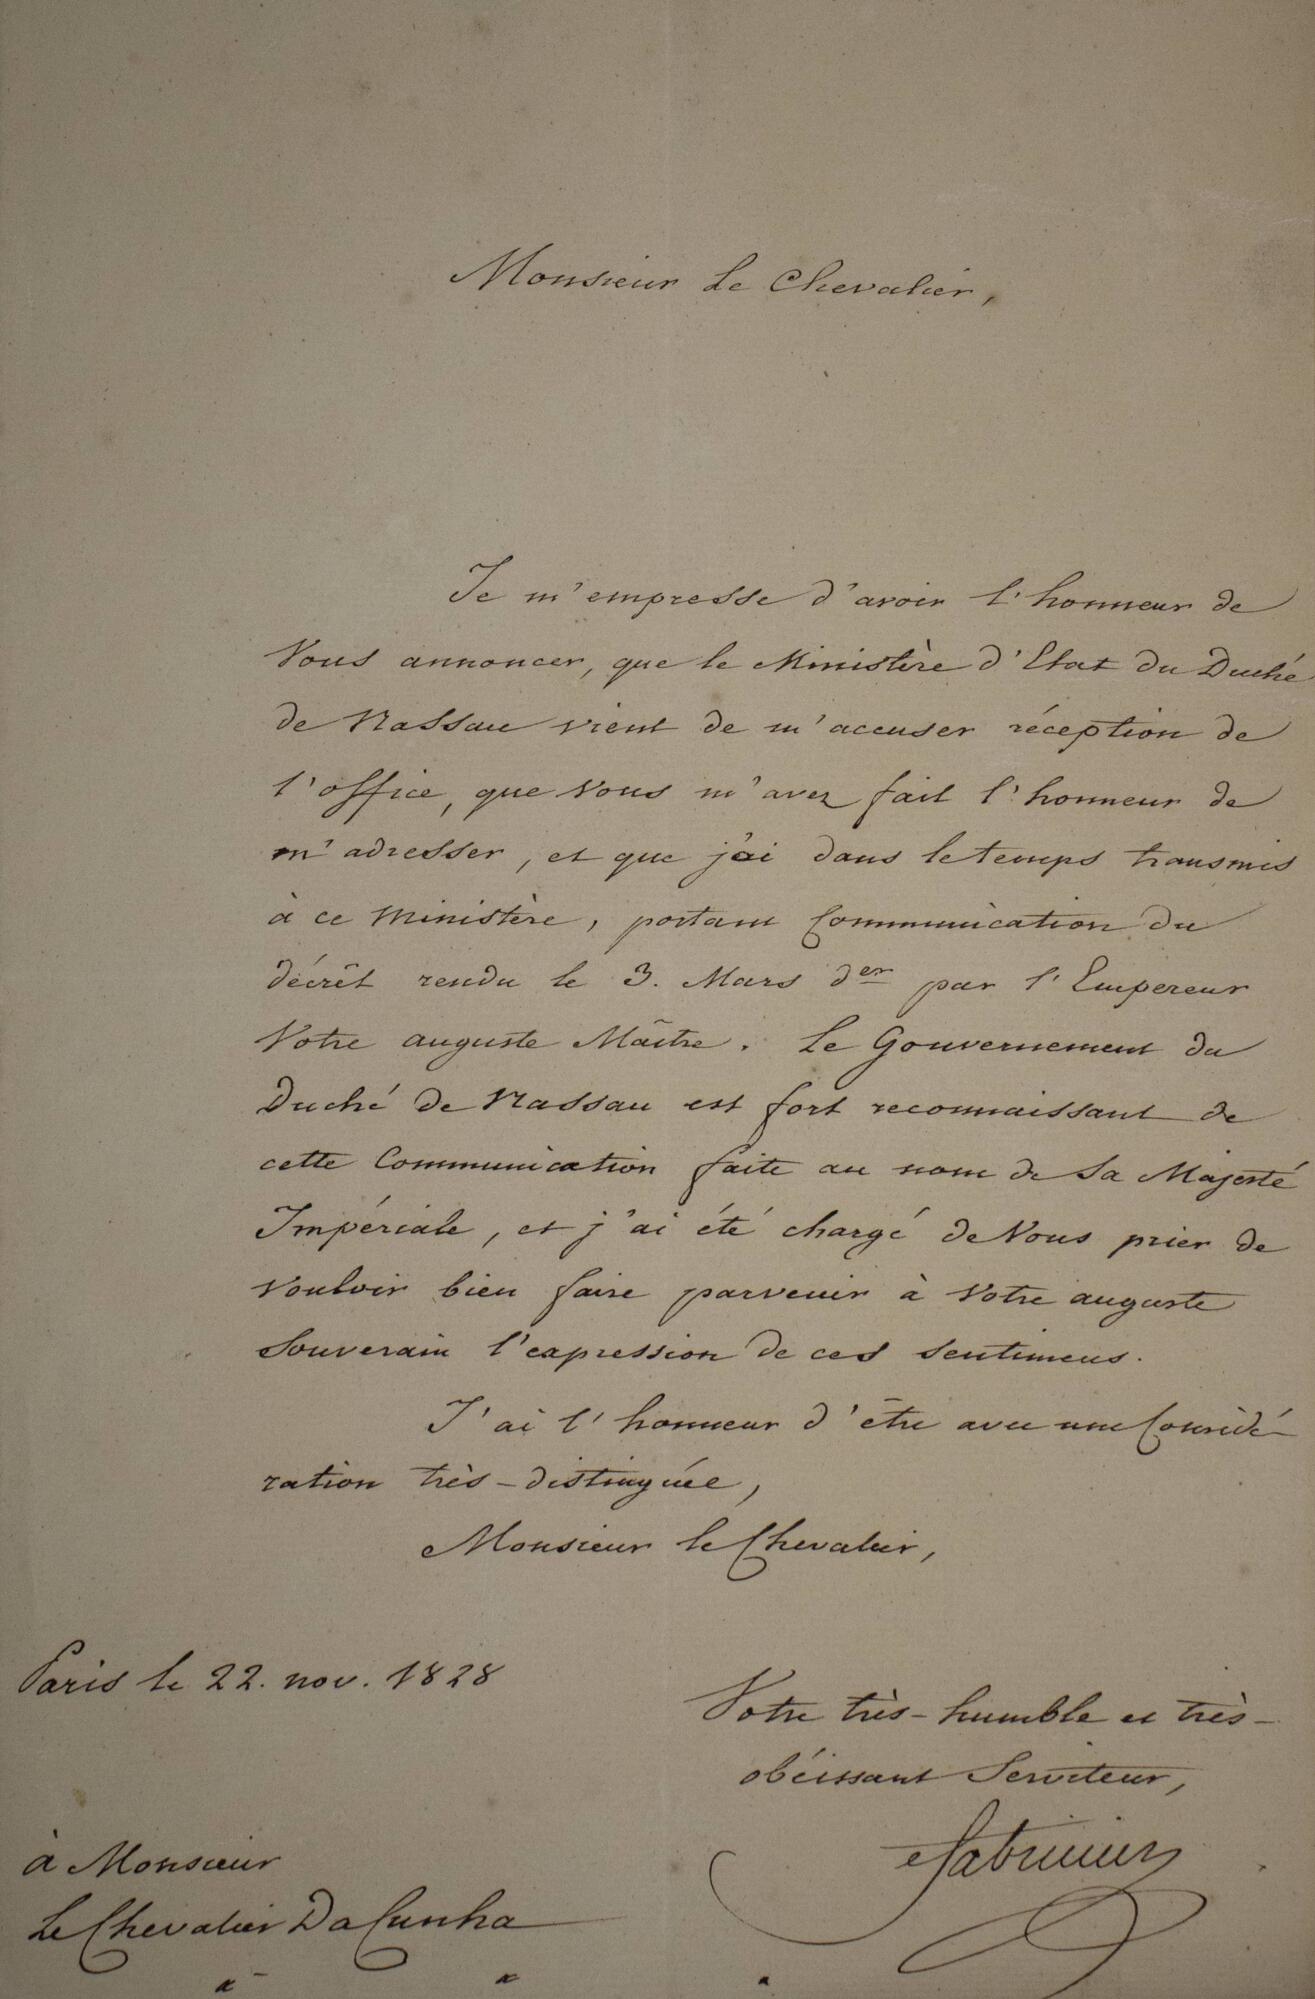 Monsieur Le Chevalier,
Je m'empresse d'avoir l'honneur de
Vous annoncer, que le Ministère d'Etat du Duché
de Nassau vient de m'accuser réception de
l'office, que Vous m'avez fait l'honneur de
m'adresser, et que j'ai dans le temps transmis
à ce Ministère, portant Communication du
décrêt rendu le 3. Mars der par l'Empereur
Votre auguste Maître. Le Gouvernement du
Duché de Nassau est fort reconnaissant de
cette Communication faite au nom de Sa Majesté
Impériale, et j'ai été chargé de Vous prier de
vouloir bien faire parvenir à Votre auguste
Souverain l'expression de ces sentimens.
J'ai l'honneur d'être avec une Considé-
ration très-distinguée,
Monsieur le Chevalier,
Paris le 22. nov. 1828
Votre très-humble et très-
obéissant Serviteur,
Fabricius
à Monsieur
Le Chevalier Da Cunha
à